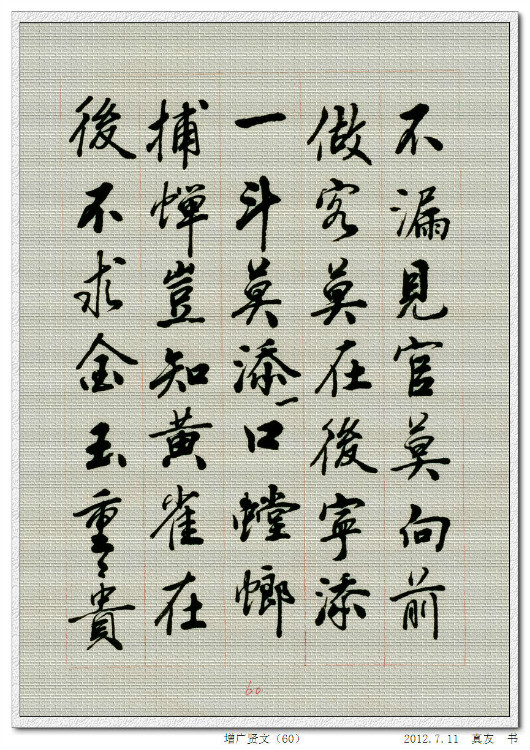 不漏見官莫向前
做客莫在後寧添
一斗莫添一口螳螂
捕蝉豈知黄雀在
後不求金玉重々貴
60
增广贤文（60）
2012.7.11 真友 书